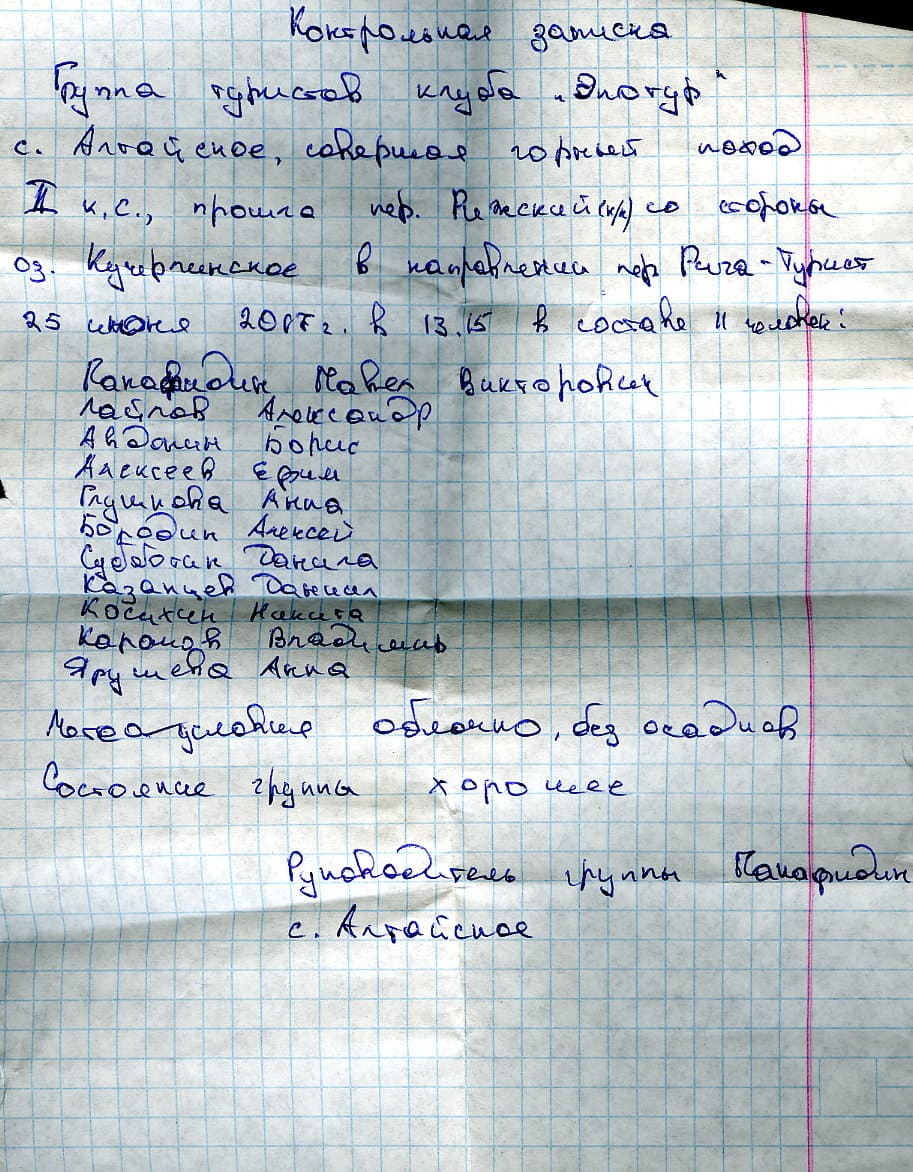 Контрольная записка
Группа туристов клуба „Экотур"
с. Алтайское, совершая горный поход
II к.с., прошла пер. Рижский (н/к) со стороны
оз. Кучерлинское в направлении пер Рига-Турист
25 июня 2007 г. в 13.15 в составе 11 человек:
Панафидин Павел Викторович
Александр
Авдонин Борис
Алексеев Ефим
Глушкова Анна
Бородин Алексей
Субботин Данила
Казанцев Даниил
Косихин Никита
Владимир
Ярушева Анна
Метеоусловия облачно, без осадков
Состояние группы хорошее
Руководитель группы Панафидин
с. Алтайское